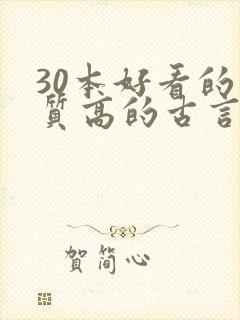 30本好看的
质高的古言
贺简心